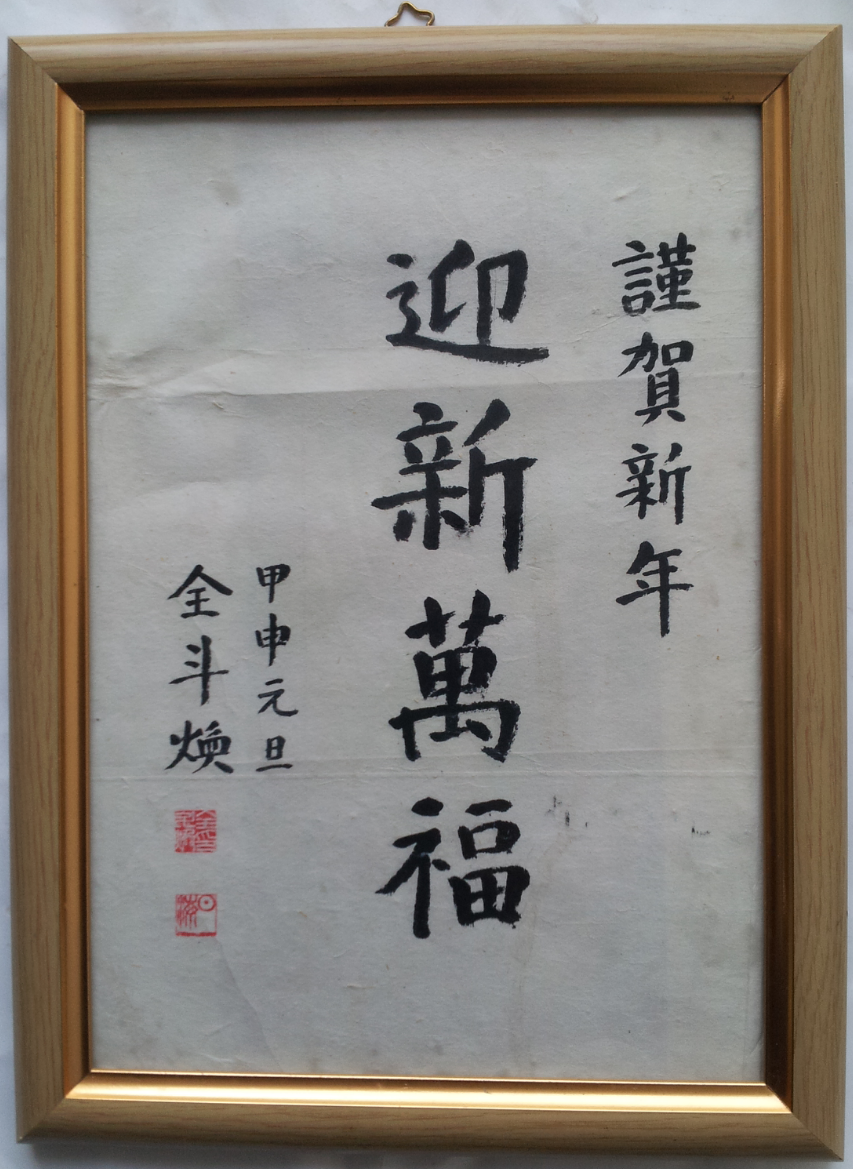 謹賀新年
迎新萬福
甲申元旦
全斗煥